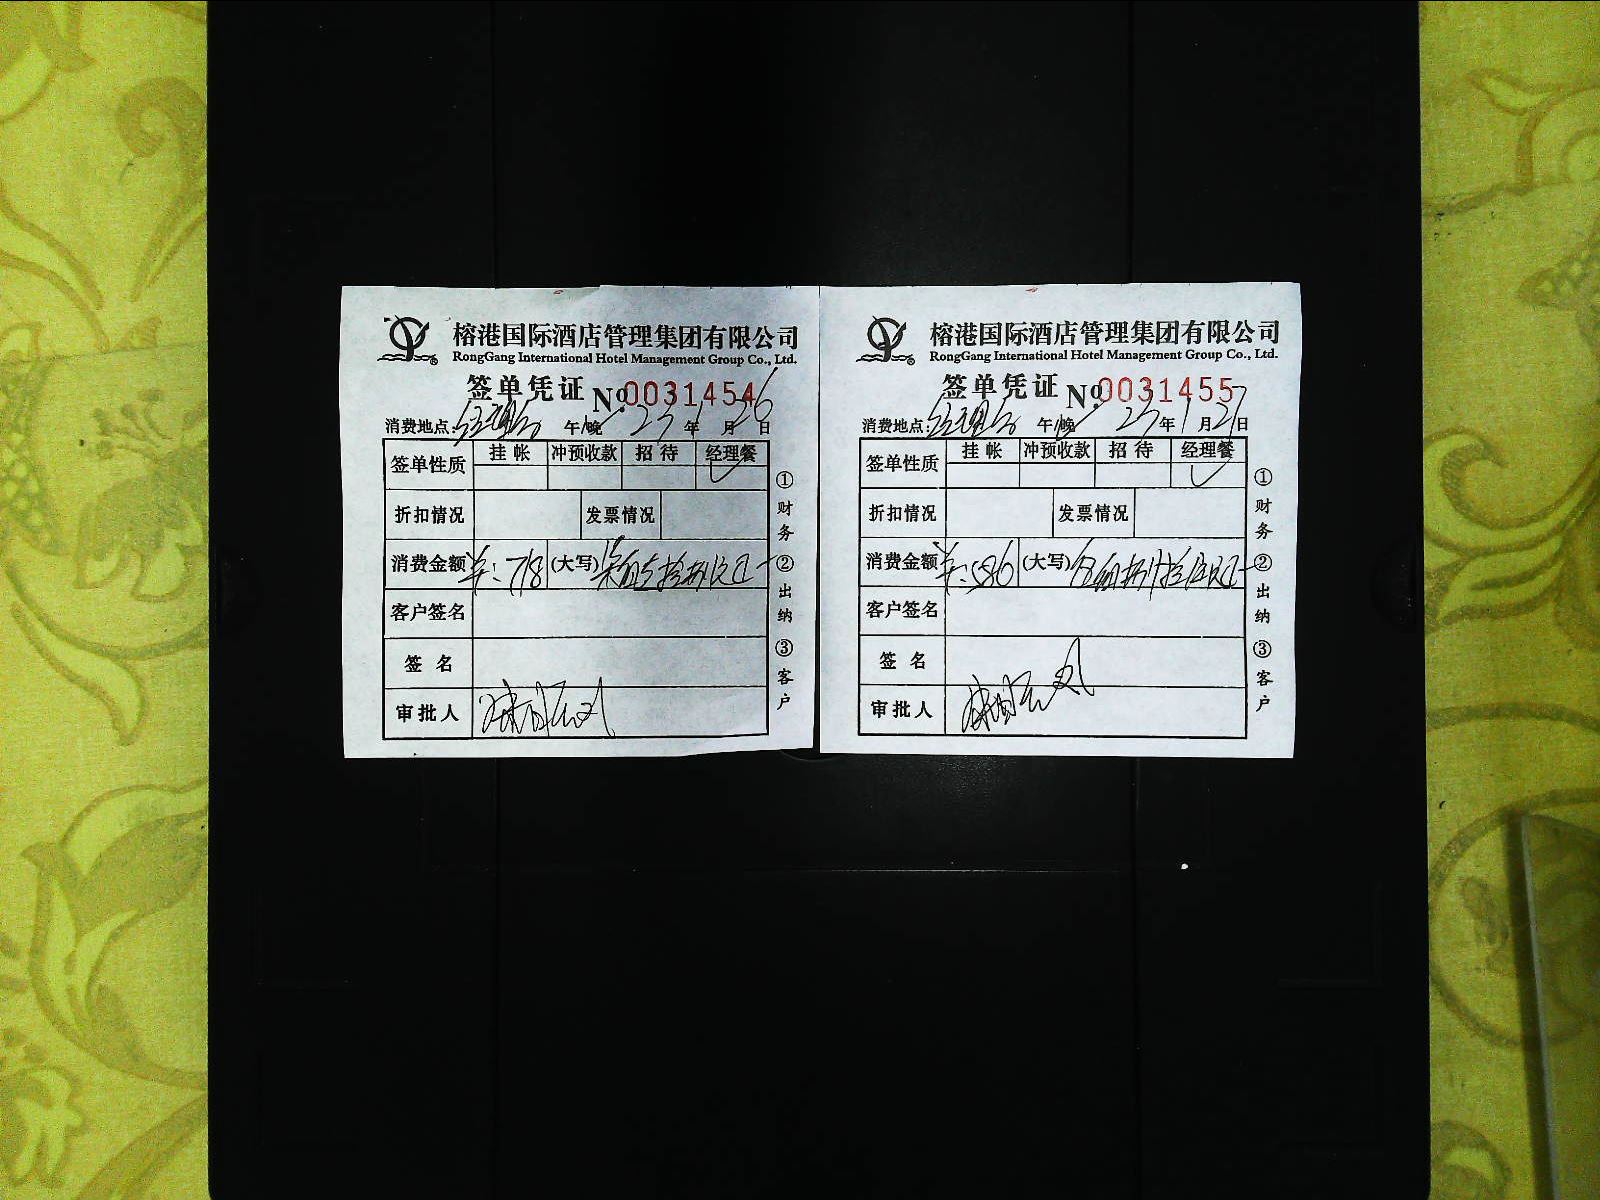 榕港国际酒店管理集团有限公司
RongGang International Hotel Management Group Co., Ltd.
签单凭证 No. 0031454
消费地点: 午/晚 年 1 月 26 日
签单性质 挂帐 冲预收款 招待 经理餐
折扣情况 发票情况
消费金额 羊: 718 (大写)
客户签名
签名
审批人
①财务 ②出纳 ③客户
榕港国际酒店管理集团有限公司
RongGang International Hotel Management Group Co., Ltd.
签单凭证 No. 0031455
消费地点: 午/晚 年 1 月 27 日
签单性质 挂帐 冲预收款 招待 经理餐
折扣情况 发票情况
消费金额 羊: 586 (大写)
客户签名
签名
审批人
①财务 ②出纳 ③客户